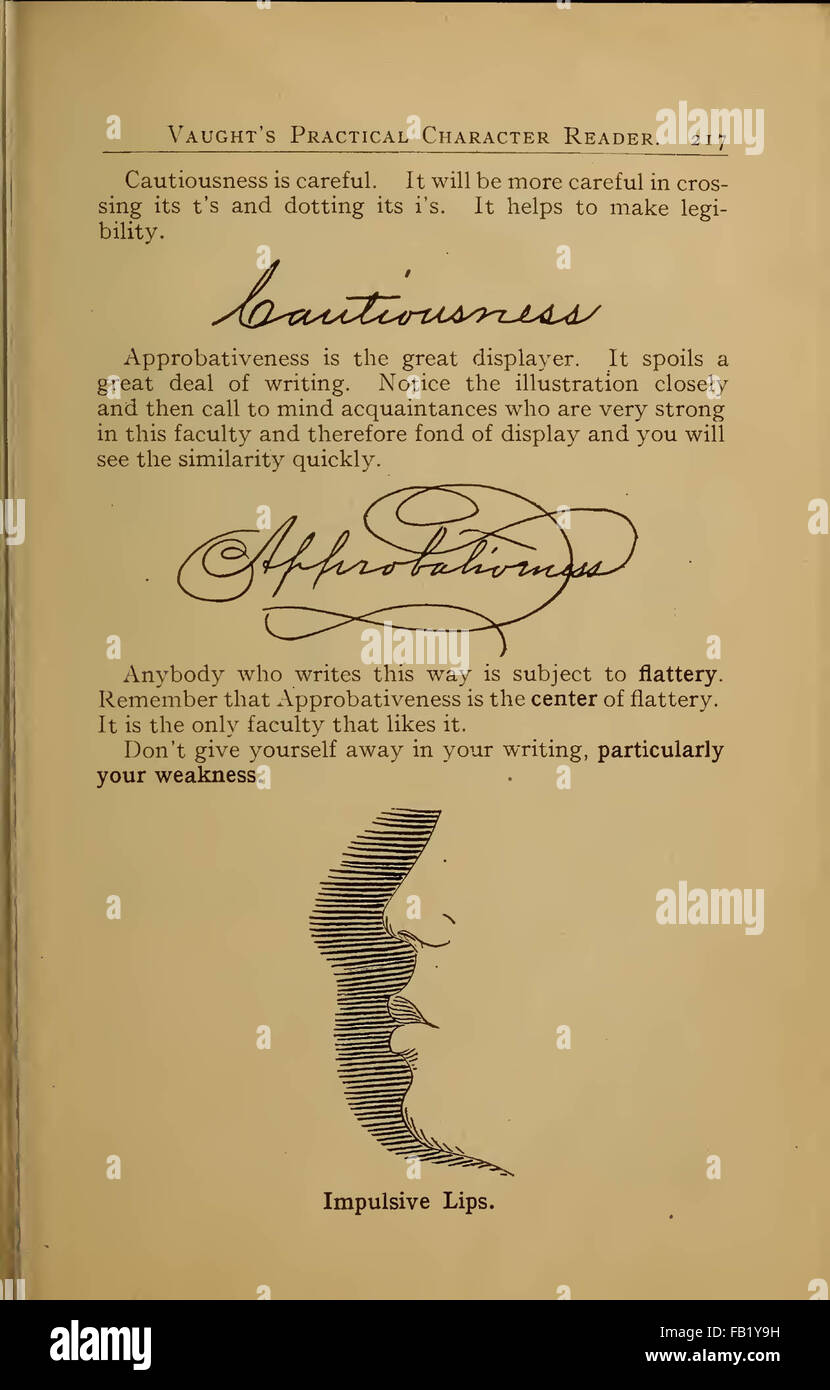 VAUGHT'S PRACTICAL CHARACTER READER. 217
Cautiousness is careful. It will be more careful in cros-
sing its t's and dotting its i's. It helps to make legi-
bility.
Cautiousness
Approbativeness is the great displayer. It spoils a
great deal of writing. Notice the illustration closely
and then call to mind acquaintances who are very strong
in this faculty and therefore fond of display and you will
see the similarity quickly.
Approbativeness
Anybody who writes this way is subject to flattery.
Remember that Approbativeness is the center of flattery.
It is the only faculty that likes it.
Don't give yourself away in your writing, particularly
your weakness.
Impulsive Lips.
alamy
alamy
alamy
a alamy
Image ID: FB1Y9H
www.alamy.com